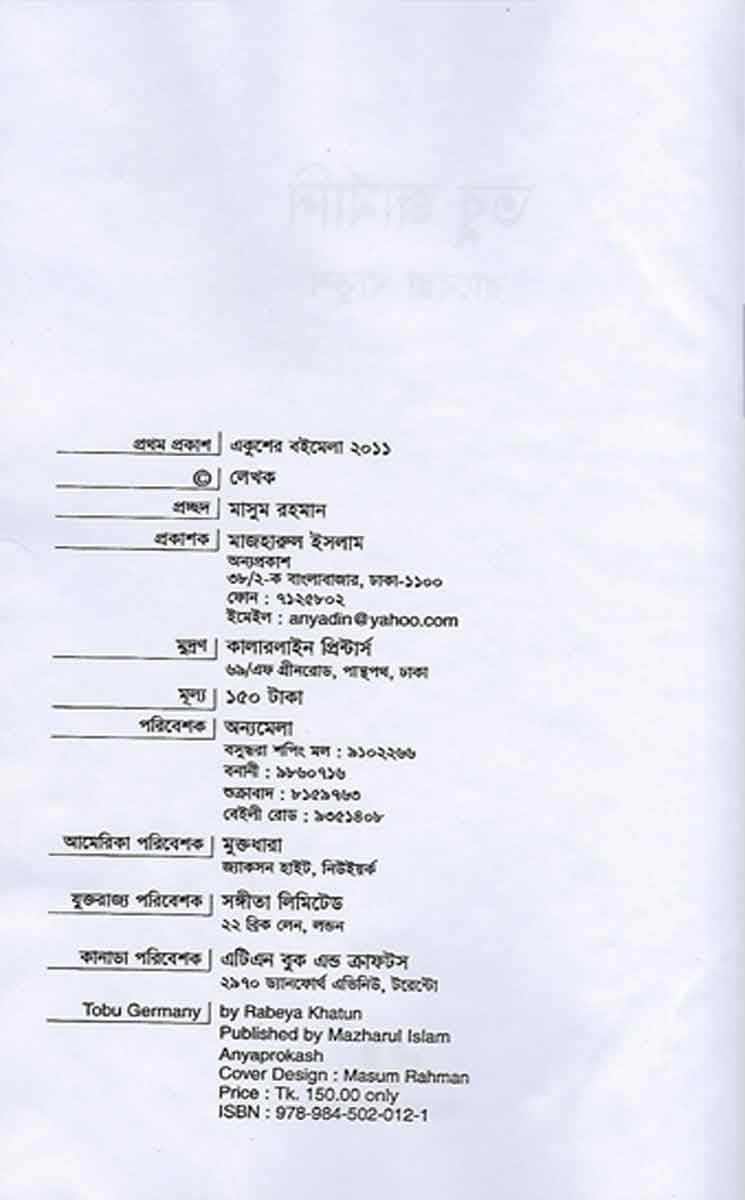 প্রথম প্রকাশ একুশের বইমেলা ২০১১
© লেখক
প্রচ্ছদ মাসুম রহমান
প্রকাশক মাজহারুল ইসলাম
অন্যপ্রকাশ
৩৮/২-ক বাংলাবাজার, ঢাকা-১১০০
ফোন : ৭১২৫৮০২
ইমেইল : anyadin@yahoo.com
মুদ্রণ কালারলাইন প্রিন্টার্স
৬৯/এফ গ্রীনরোড, পান্থপথ, ঢাকা
মূল্য ১৫০ টাকা
পরিবেশক অন্যমেলা
বসুন্ধরা শপিং মল : ৯১০২২৬৬
বনানী : ৯৮৬০৭১৬
শুক্রাবাদ : ৮১৫৯৭৬৩
বেইলী রোড : ৯৩৫১৪০৮
আমেরিকা পরিবেশক মুক্তধারা
জ্যাকসন হাইট, নিউইয়র্ক
যুক্তরাজ্য পরিবেশক সঙ্গীতা লিমিটেড
২২ ব্রিক লেন, লন্ডন
কানাডা পরিবেশক এটিএন বুক এন্ড ক্রাফটস
২৯৭০ ড্যানফোর্থ এভিনিউ, টরেন্টো
Tobu Germany by Rabeya Khatun
Published by Mazharul Islam
Anyaprokash
Cover Design : Masum Rahman
Price : Tk. 150.00 only
ISBN : 978-984-502-012-1